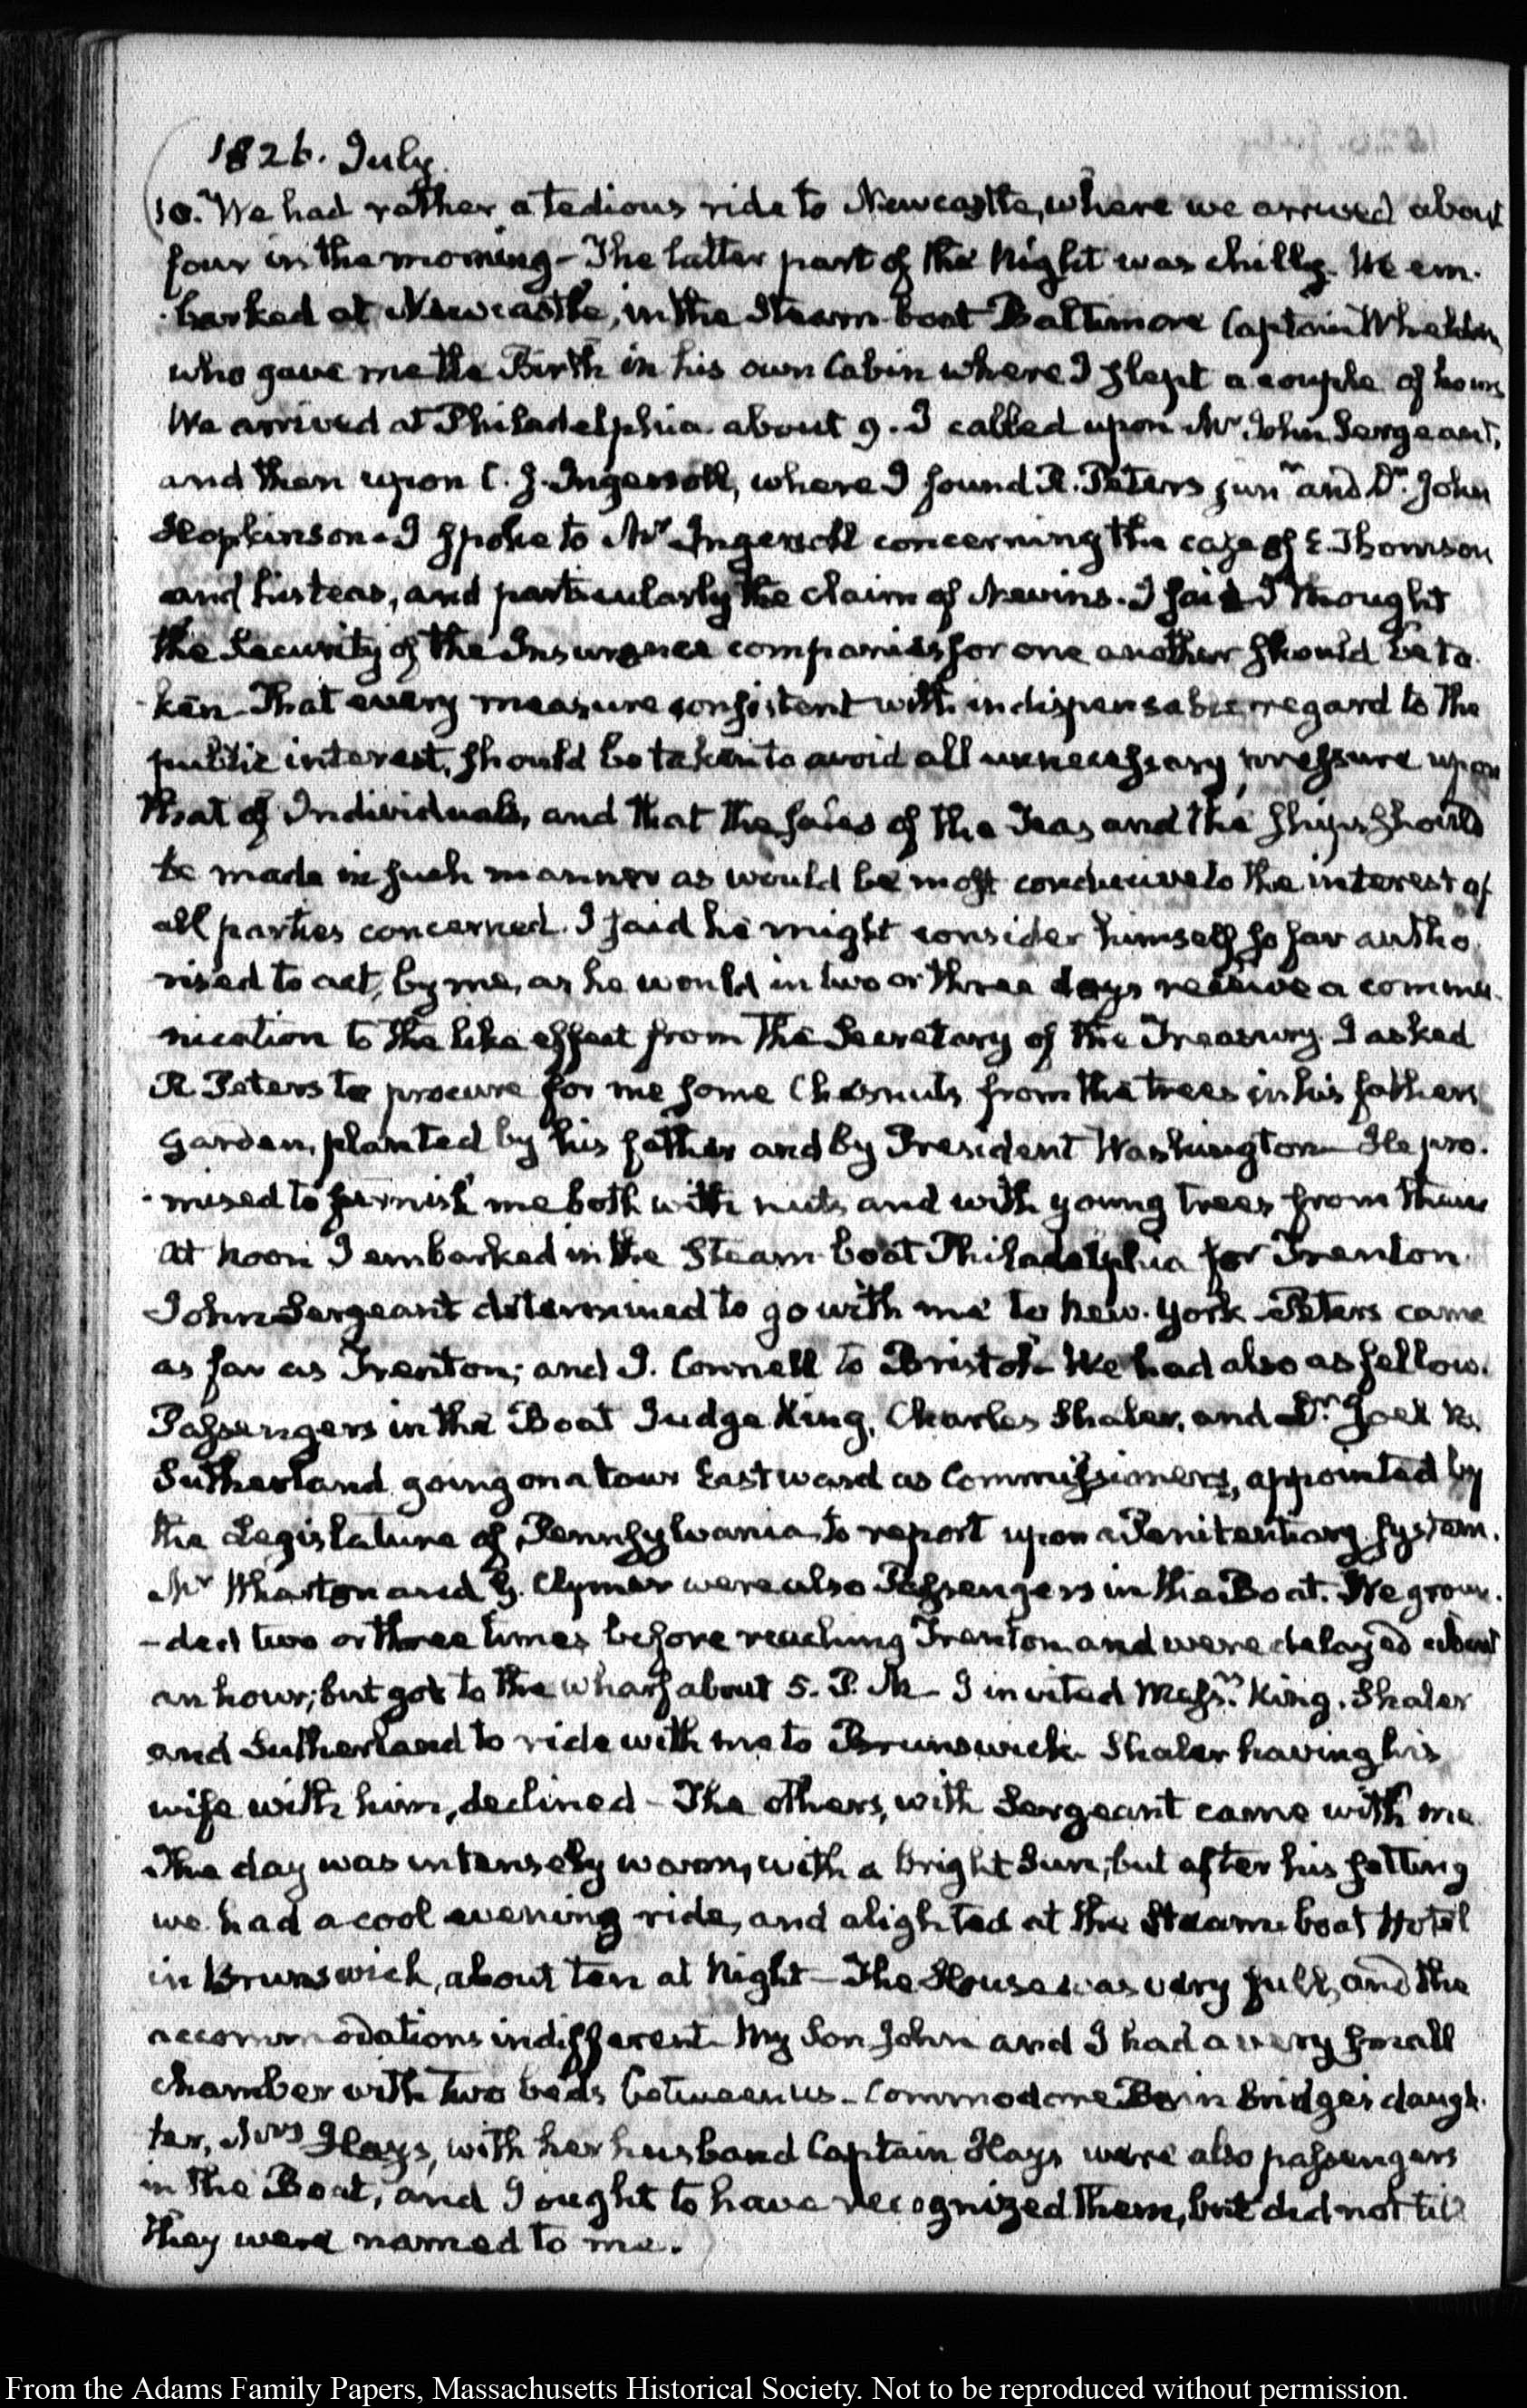 1826. July.
10. We had rather a tedious ride to Newcastle, where we arrived about
four in the morning - The latter part of the Night was chilly. We em-
-barked at Newcastle, in the Steam-boat Baltimore Captain Wheldin,
who gave me the Birth in his own Cabin where I slept a couple of hours
We arrived at Philadelphia about 9. I called upon Mr. John Sergeant,
and then upon C. J. Ingersoll, where I found R. Peters junr. and Dr. John
Hopkinson. I spoke to Mr Ingersoll concerning the case of E. Thomson
and his teas, and particularly the claim of Nevins. I said I thought
the Security of the Insurance companies for one another should be ta-
-ken - That every measure consistent with indispensable regard to the
public interest, should be taken to avoid all unnecessary pressure upon
that of Individuals, and that the sales of the Teas and the ships should
be made in such manner as would be most conducive to the interest of
all parties concerned. I said he might consider himself so far autho-
rised to act, by me, as he would in two or three days receive a commu-
nication to the like effect from the Secretary of the Treasury. I asked
R Peters to procure for me some Chesnuts from the trees in his fathers
Garden, planted by his father and by President Washington - He pro-
-mised to furnish me both with nuts and with young trees from them
At Noon I embarked in the Steam-boat Philadelphia for Trenton
John Sergeant determined to go with me to New-York - Peters came
as far as Trenton; and J. Connell to Bristol - We had also as fellow-
Passengers in the Boat Judge King, Charles Shaler, and Dr. Joel B.
Sutherland going on a tour Eastward as Commissioners, appointed by
the Legislature of Pennsylvania to report upon a Penitentiary system.
Mr Wharton and G. Clymer were also Passengers in the Boat. We groun-
-ded two or three times before reaching Trenton and were delayed about
an hour; but got to the wharf about 5. P. M - I invited Messrs. King, Shaler
and Sutherland to ride with me to Brunswick. Shaler having his
wife with him, declined - The others, with Sergeant came with me
The day was intensely warm, with a bright Sun; but after his setting
we had a cool evening ride, and alighted at the Steamboat Hotel
in Brunswick, about ten at Night - The House was very full, and the
accommodations indifferent. My Son John and I had a very small
chamber with two beds between us - Commodore Bainbridge's daugh-
ter, Mrs Hays, with her husband Captain Hays were also passengers
in the Boat, and I ought to have recognized them, but did not till
they were named to me.
From the Adams Family Papers, Massachusetts Historical Society. Not to be reproduced without permission.